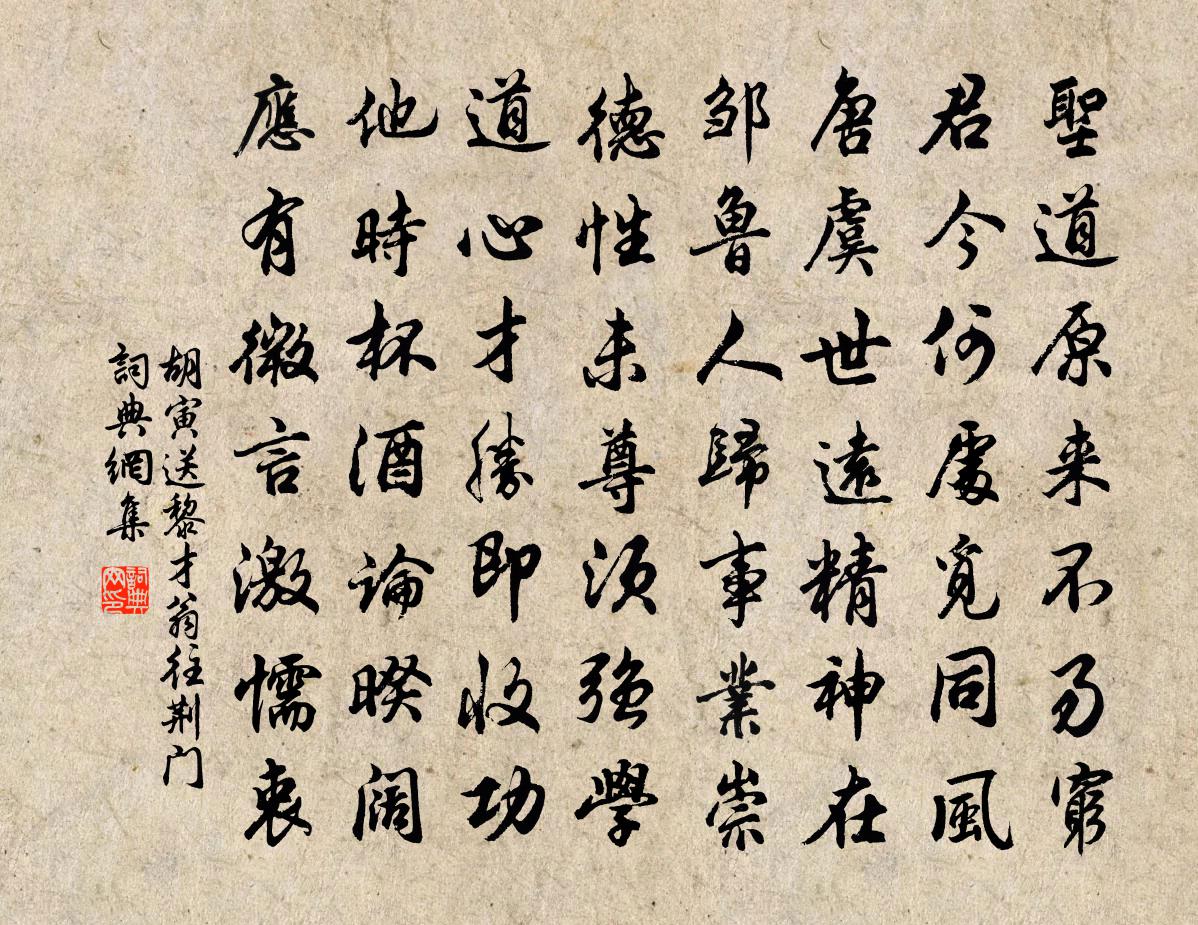 聖道原来不易窮
君今何處覓同風
唐虞世遠精神在
邹魯人歸事業崇
德性未尊须強學
道心才勝即收功
他時杯酒論暌阔
應有微言激懦衷
胡寅送黎才翁往荆门
詞典網集
詞典网印